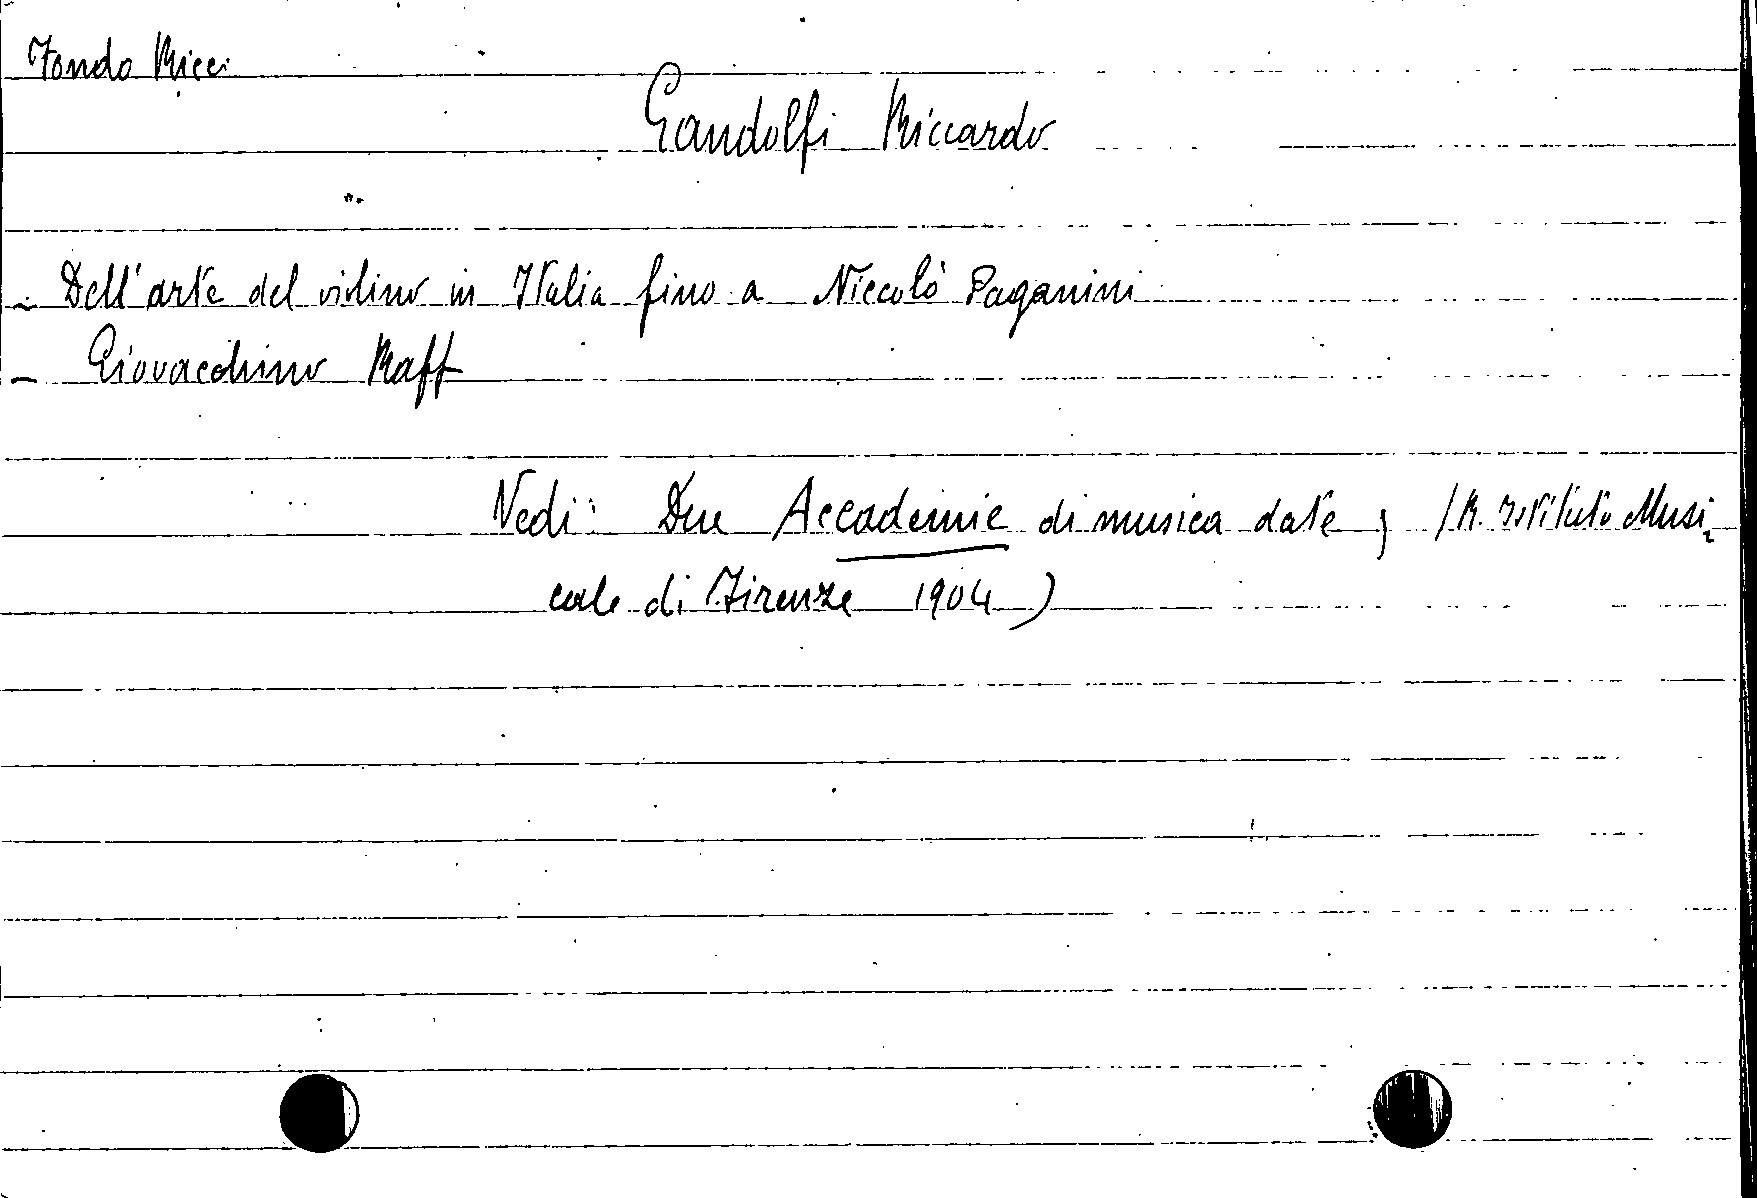 Fondo Ricci
Gandolfi Riccardo
- Dell'arte del violino in Italia fino a Niccolò Paganini
- Giovacchino Raff
Vedi: Due Accademie di musica date, (R. Istituto Musi-
cale di Firenze 1904)